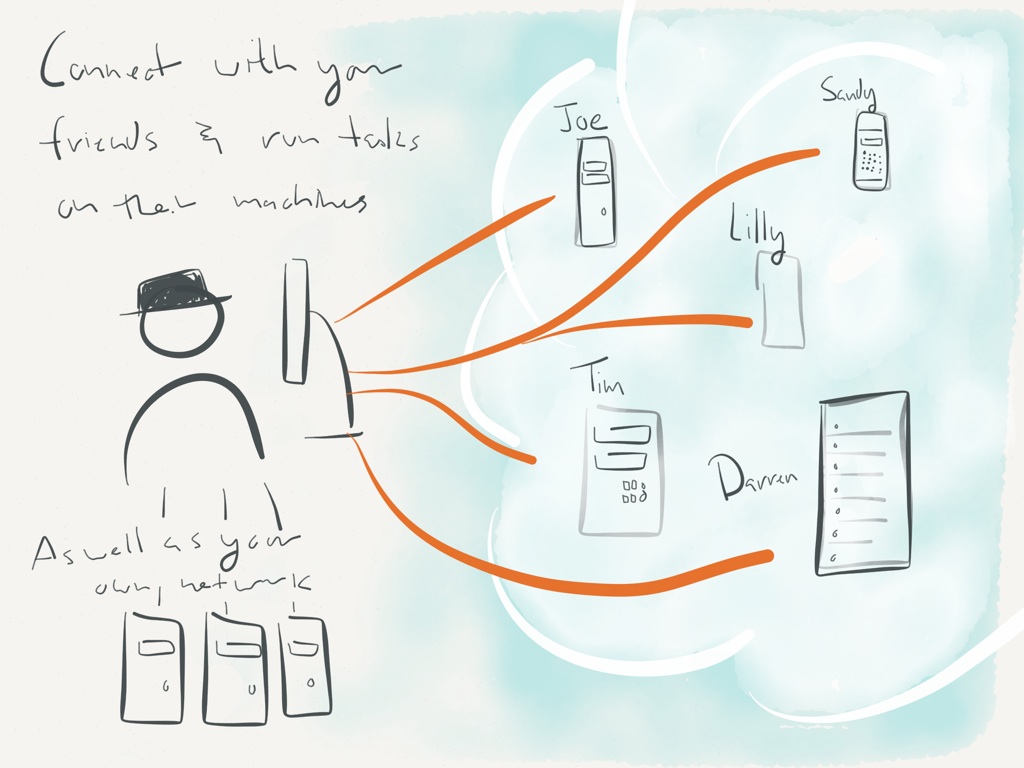 Connect with your
friends & run tasks
on their machines
Joe
Sandy
Lilly
Tim
Darren
As well as your
own network